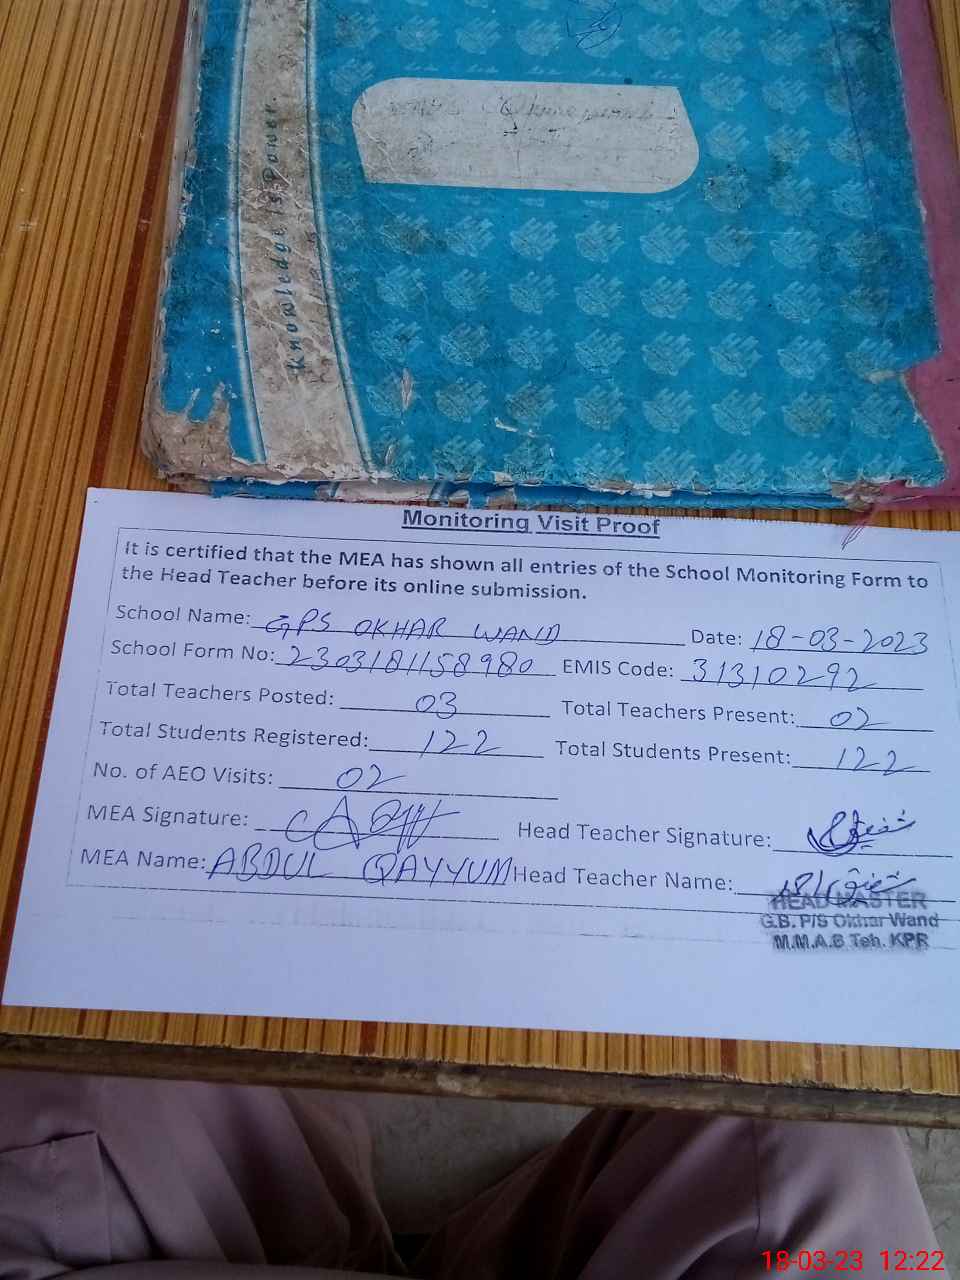 Knowledge Is Power.
Monitoring Visit Proof
It is certified that the MEA has shown all entries of the School Monitoring Form to
the Head Teacher before its online submission.
School Name: GPS OKHAR WAND Date: 18-03-2023
School Form No: 2303181158980 EMIS Code: 31310292
Total Teachers Posted: 03 Total Teachers Present: 02
Total Students Registered: 122 Total Students Present: 122
No. of AEO Visits: 02
MEA Signature: Head Teacher Signature:
MEA Name: ABDUL QAYYUM Head Teacher Name:
HEAD MASTER
G.B. P/S Okhar Wand
M.M.A.B Teh. KPR
18-03-23 12:22